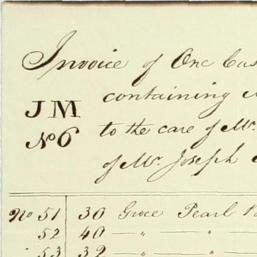 Invoice of One Cas
JM containing
No 6 to the care of Mr.
of Mr. Joseph
No 51 30 Groce Pearl
52 40 — " — " —
53 39 — " — " —